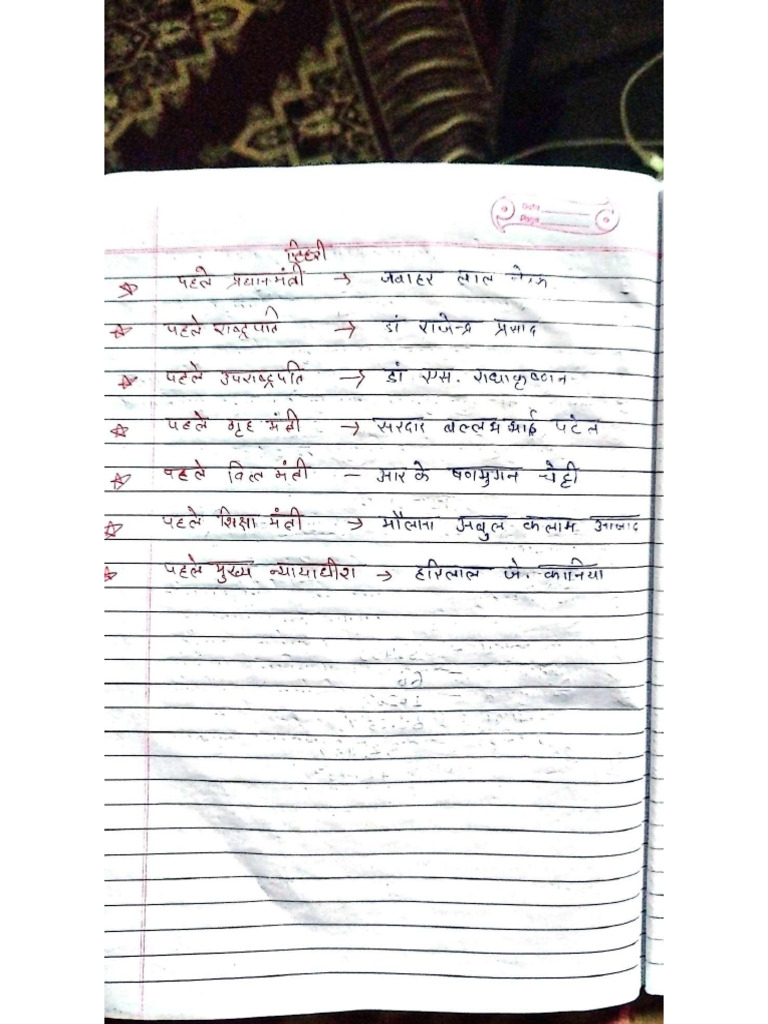 Date
Page
हिस्ट्री
पहले प्रधानमंत्री → जवाहर लाल नेहरू
पहले राष्ट्रपति → डां राजेन्द्र प्रसाद
पहले उपराष्ट्रपति → डां एस. राधाकृष्णन
पहले गृह मंत्री → सरदार बल्लभ भाई पटेल
पहले वित्त मंत्री – आर के षणमुगन चेट्टी
पहले शिक्षा मंत्री → मौलाना अबुल कलाम आजाद
पहले मुख्य न्यायाधीश → हरिलाल जे. कानिया